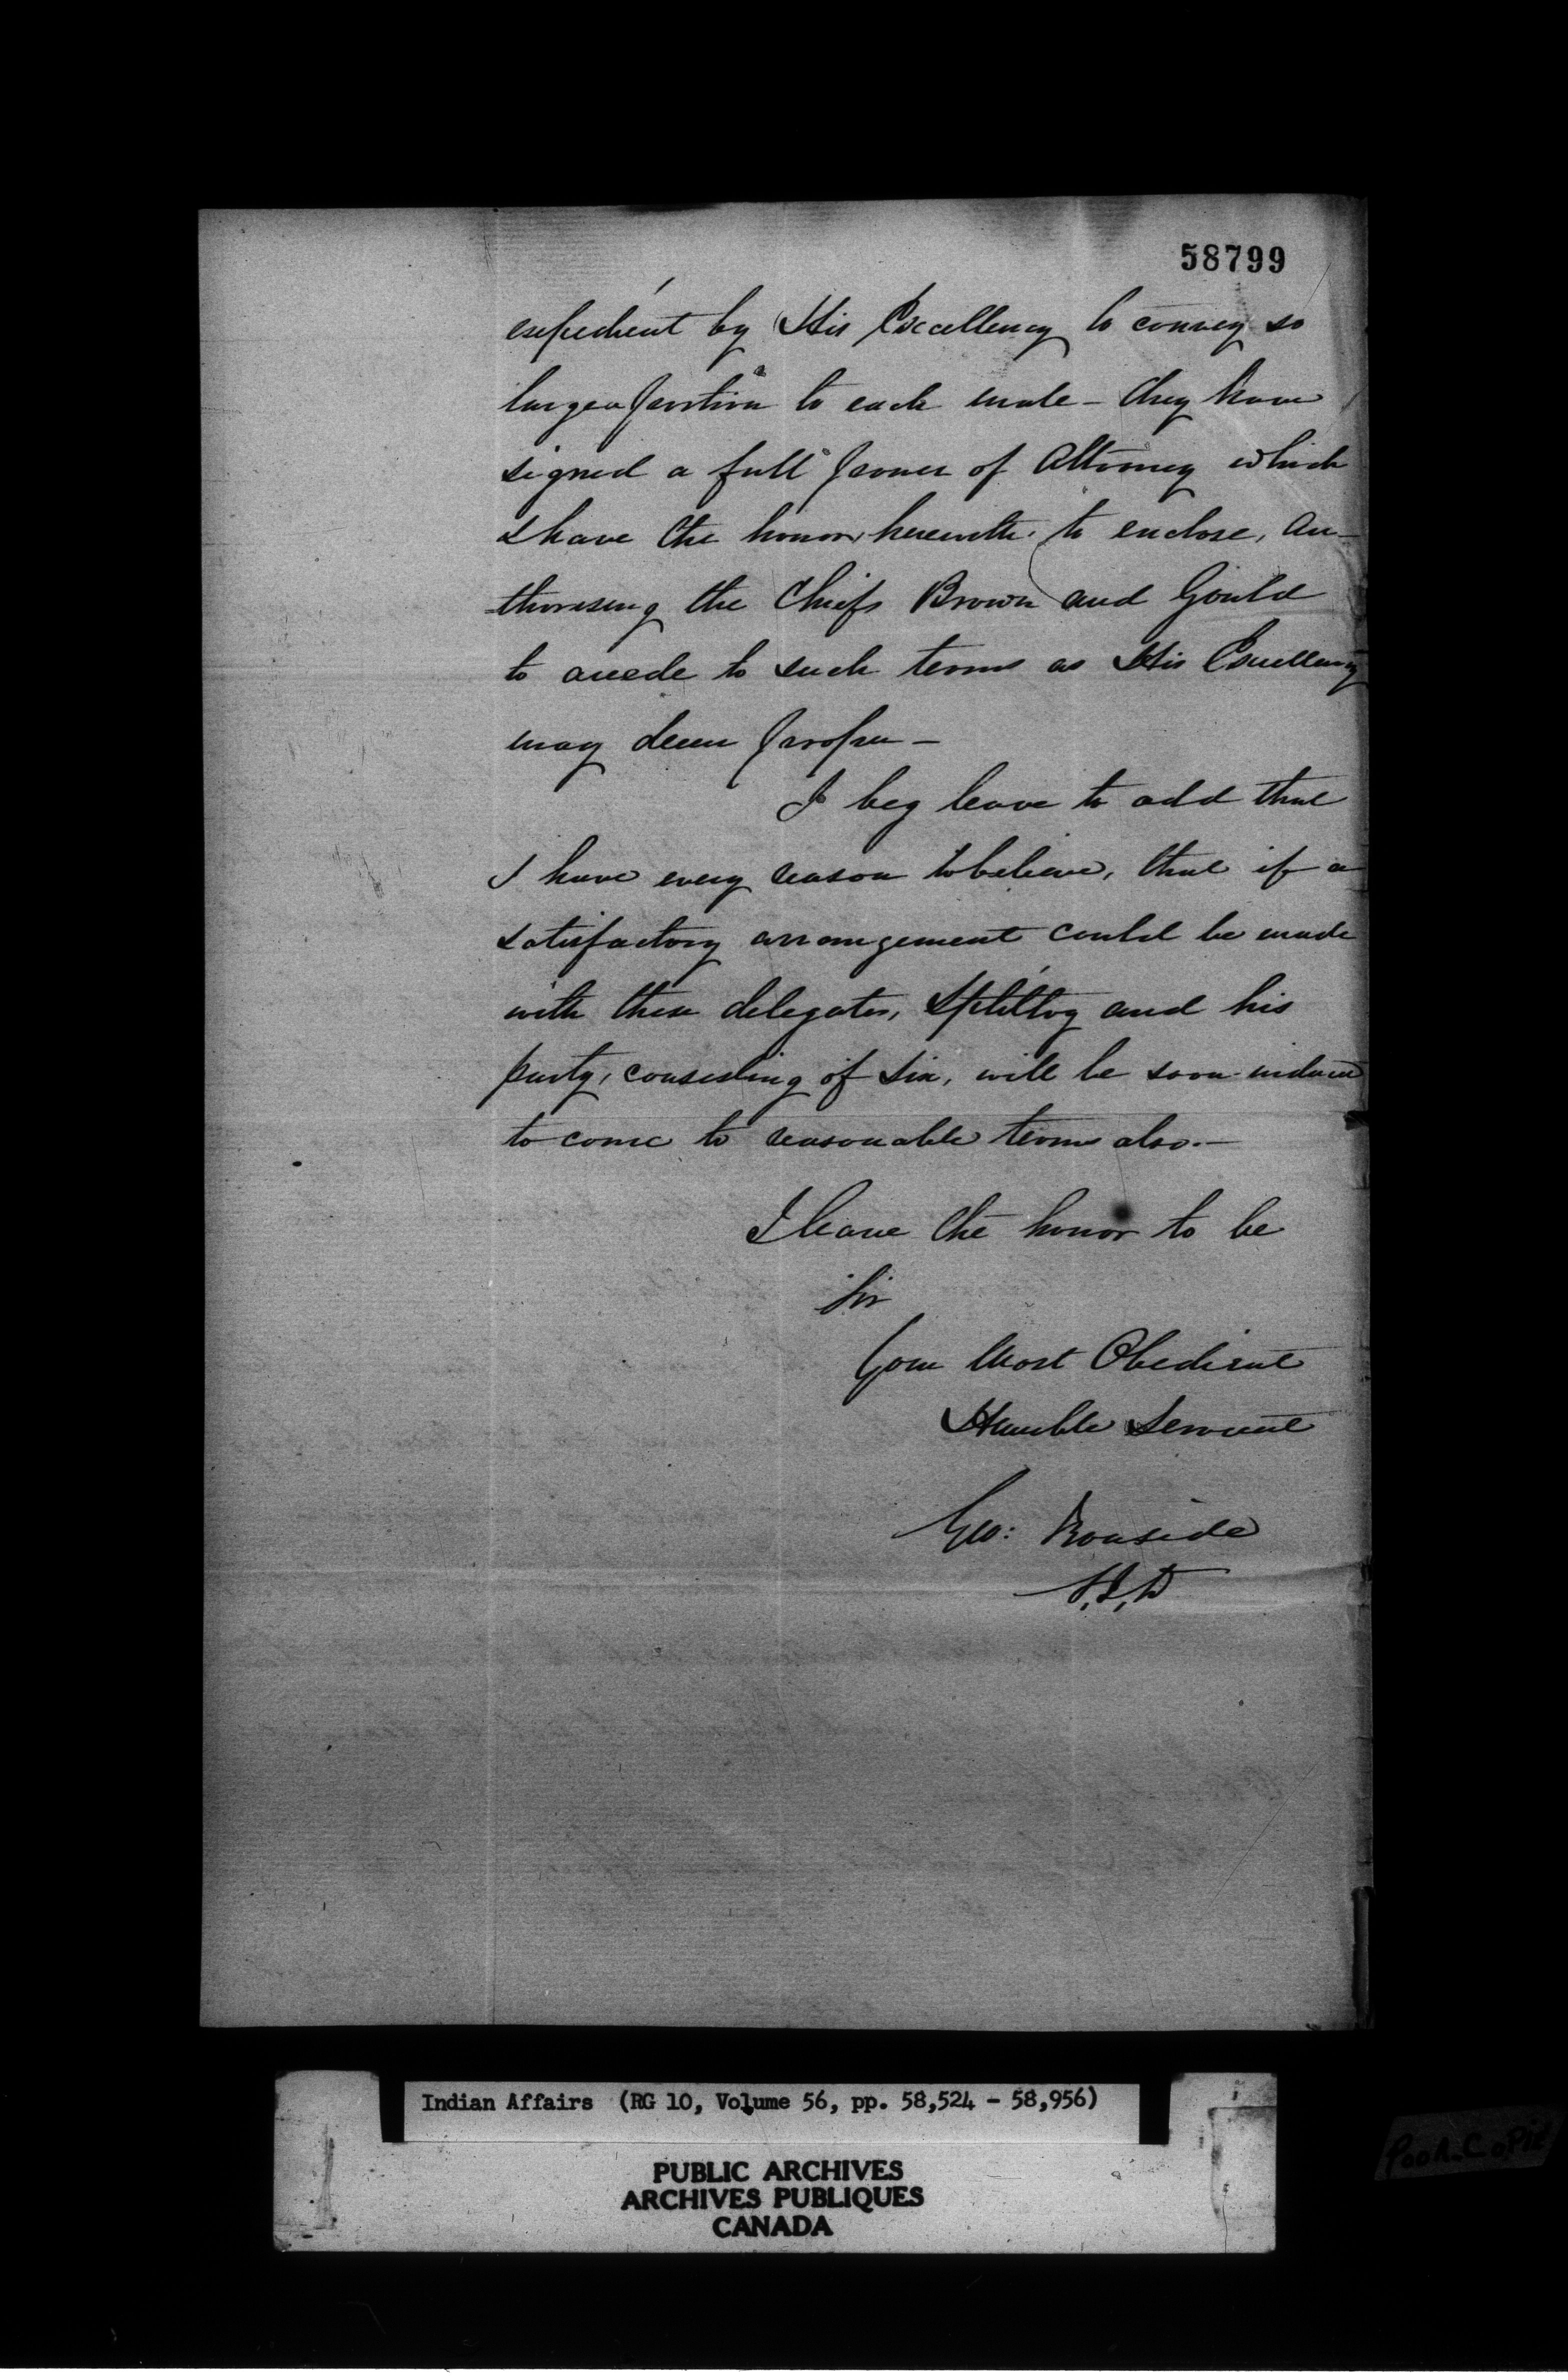 58799
expedient by His Excellency to convey so
large a portion to each male - they have
signed a full power of Attorney which
I have the honor, herewith, to enclose, au-
-thorising the Chiefs Brown and Gould
to accede to such terms as His Excellency
may deem proper -
I beg leave to add that
I have every reason to believe, that if a
satisfactory arrangement could be made
with these delegates, Splitlog and his
party, consisting of six, will be soon induced
to come to reasonable terms also. -
I have the honor to be
Sir
Your Most Obedient
Humble Servant
Geo: Ironside
S.I.A
Indian Affairs (RG 10, Volume 56, pp. 58,524 - 58,956)
PUBLIC ARCHIVES
ARCHIVES PUBLIQUES
CANADA